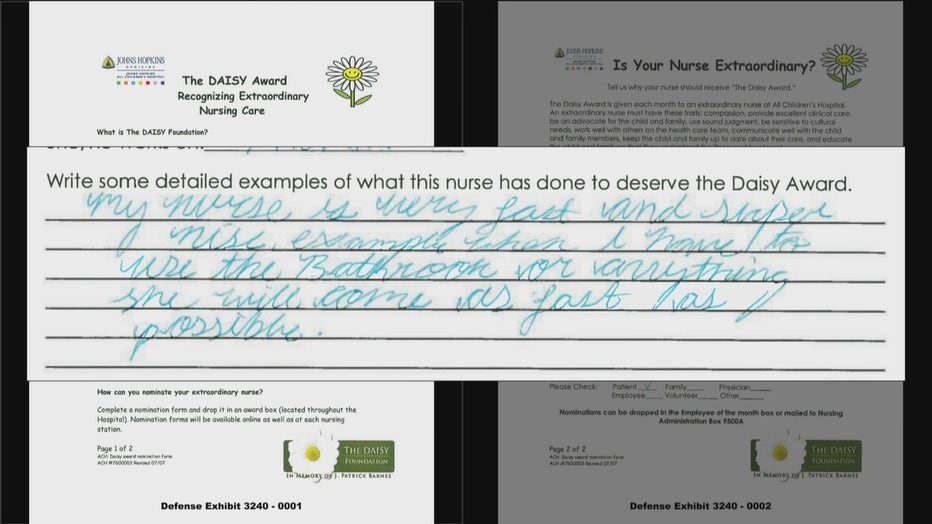 JOHNS HOPKINS
MEDICINE
JOHNS HOPKINS
ALL CHILDREN'S HOSPITAL
The DAISY Award
Recognizing Extraordinary
Nursing Care
What is The DAISY Foundation?
JOHNS HOPKINS
MEDICINE
Is Your Nurse Extraordinary?
Tell us why your nurse should receive "The Daisy Award."
The Daisy Award is given each month to an extraordinary nurse at All Children's Hospital.
An extraordinary nurse must have these traits: compassion, provide excellent clinical care,
be an advocate for the child and family, use sound judgment, be sensitive to cultural
needs, work well with others on the health care team, communicate well with the child
and family members, keep the child and family up to date about their care, and educate
Write some detailed examples of what this nurse has done to deserve the Daisy Award.
my nurse is very fast and super
nise. example when I have to
use the Bathroom or anything
she will come as fast as
possible.
How can you nominate your extraordinary nurse?
Complete a nomination form and drop it in an award box (located throughout the
Hospital). Nomination forms will be available online as well as at each nursing
station.
Page 1 of 2
ACH: Daisy award nomination form
ACH #7600003 Revised 07/07
THE DAISY
FOUNDATION
IN MEMORY OF J. PATRICK BARNES
Defense Exhibit 3240 - 0001
Please Check: Patient ✓ Family____ Physician____
Employee____ Volunteer____ Other____
Nominations can be dropped in the Employee of the month box or mailed to Nursing
Administration Box 9500A
Page 2 of 2
ACH: Daisy award nomination form
ACH #7600003 Revised 07/07
THE DAISY
FOUNDATION
IN MEMORY OF J. PATRICK BARNES
Defense Exhibit 3240 - 0002